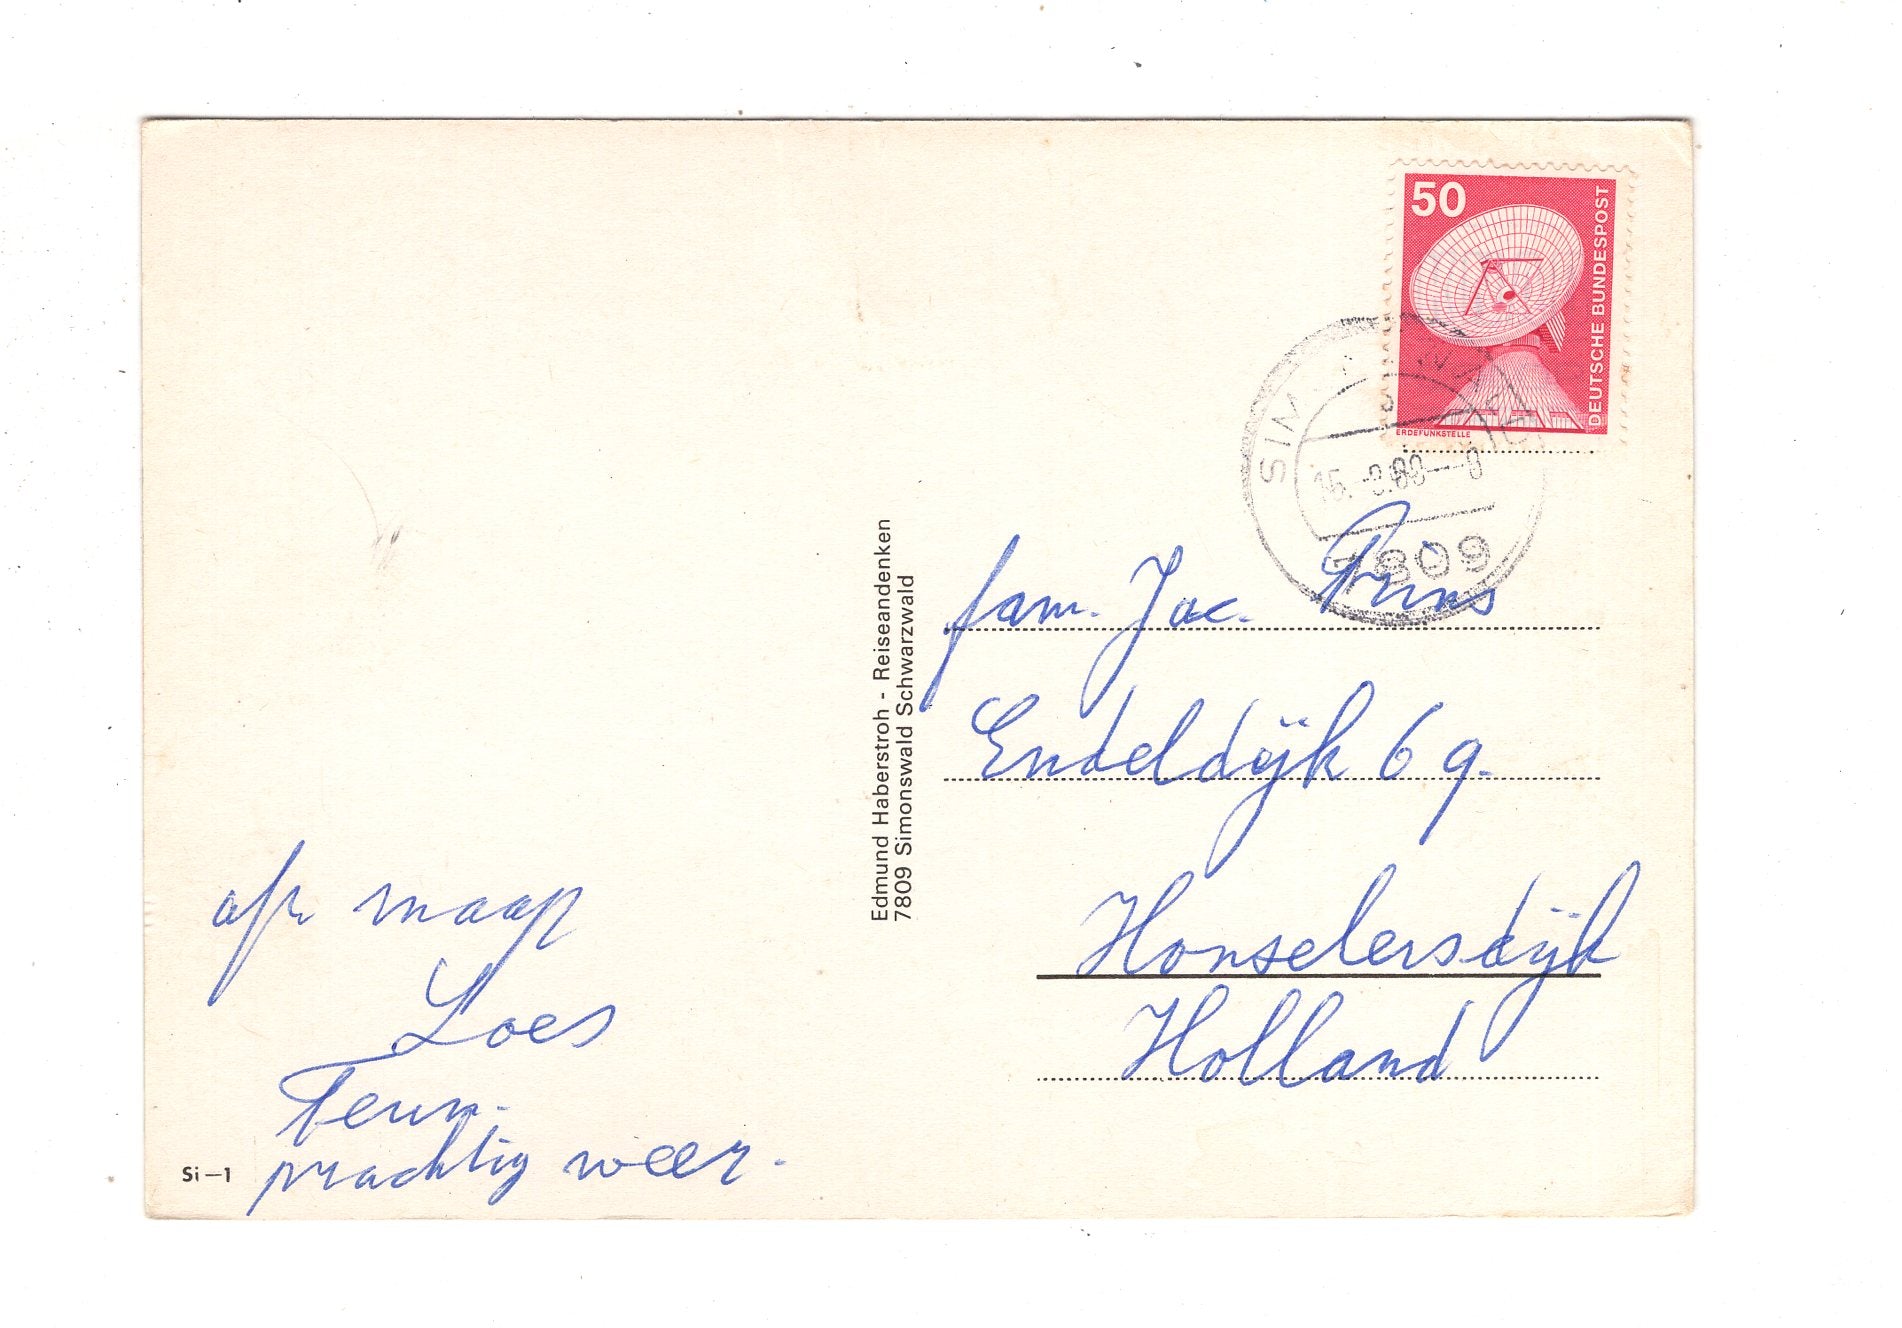 50
DEUTSCHE BUNDESPOST
ERDEFUNKSTELLE
7809
Edmund Haberstroh - Reiseandenken
7809 Simonswald Schwarzwald
fam. Jac. Prins
Endeldijk 69.
Honselersdijk
Holland
maap
Loes
Teun.
prachtig weer.
Si-1